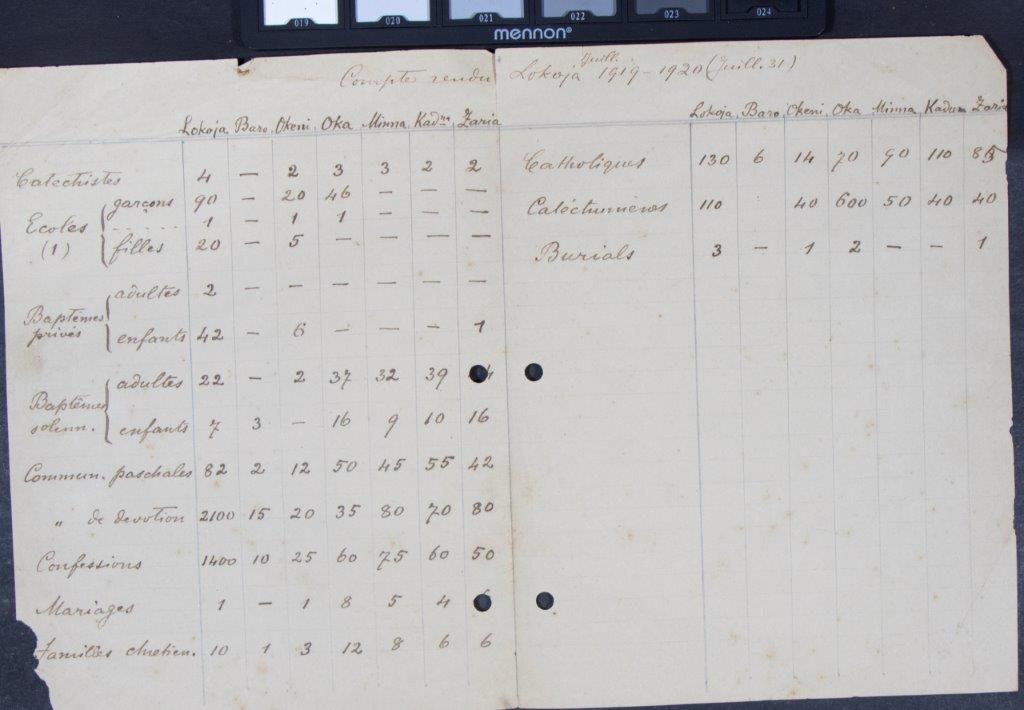 019 020 021 022 023 024
mennon®
Compte rendu Lokoja Juill. 1919-1920 (Juill. 31)
Lokoja Baro Okeni Oka Minna Kadna Zaria
Catechistes 4 — 2 3 3 2 2
Ecoles (1) garçons 90 - 20 46 - - -
1 - 1 1 - - -
filles 20 - 5 - - - -
Baptêmes privés adultes 2 - - - - - -
enfants 42 - 6 - - - 1
Baptêmes solenn. adultes 22 - 2 37 32 39 4
enfants 7 3 - 16 9 10 16
Commun. paschales 82 2 12 50 45 55 42
" de devotion 2100 15 20 35 80 70 80
Confessions 1400 10 25 60 75 60 50
Mariages 1 - 1 8 5 4
Familles chretien. 10 1 3 12 8 6 6
Lokoja Baro Okeni Oka Minna Kaduna Zaria
Catholiques 130 6 14 70 90 110
Catéchumènes 110 40 600 50 40 40
Burials 3 - 1 2 - - 1